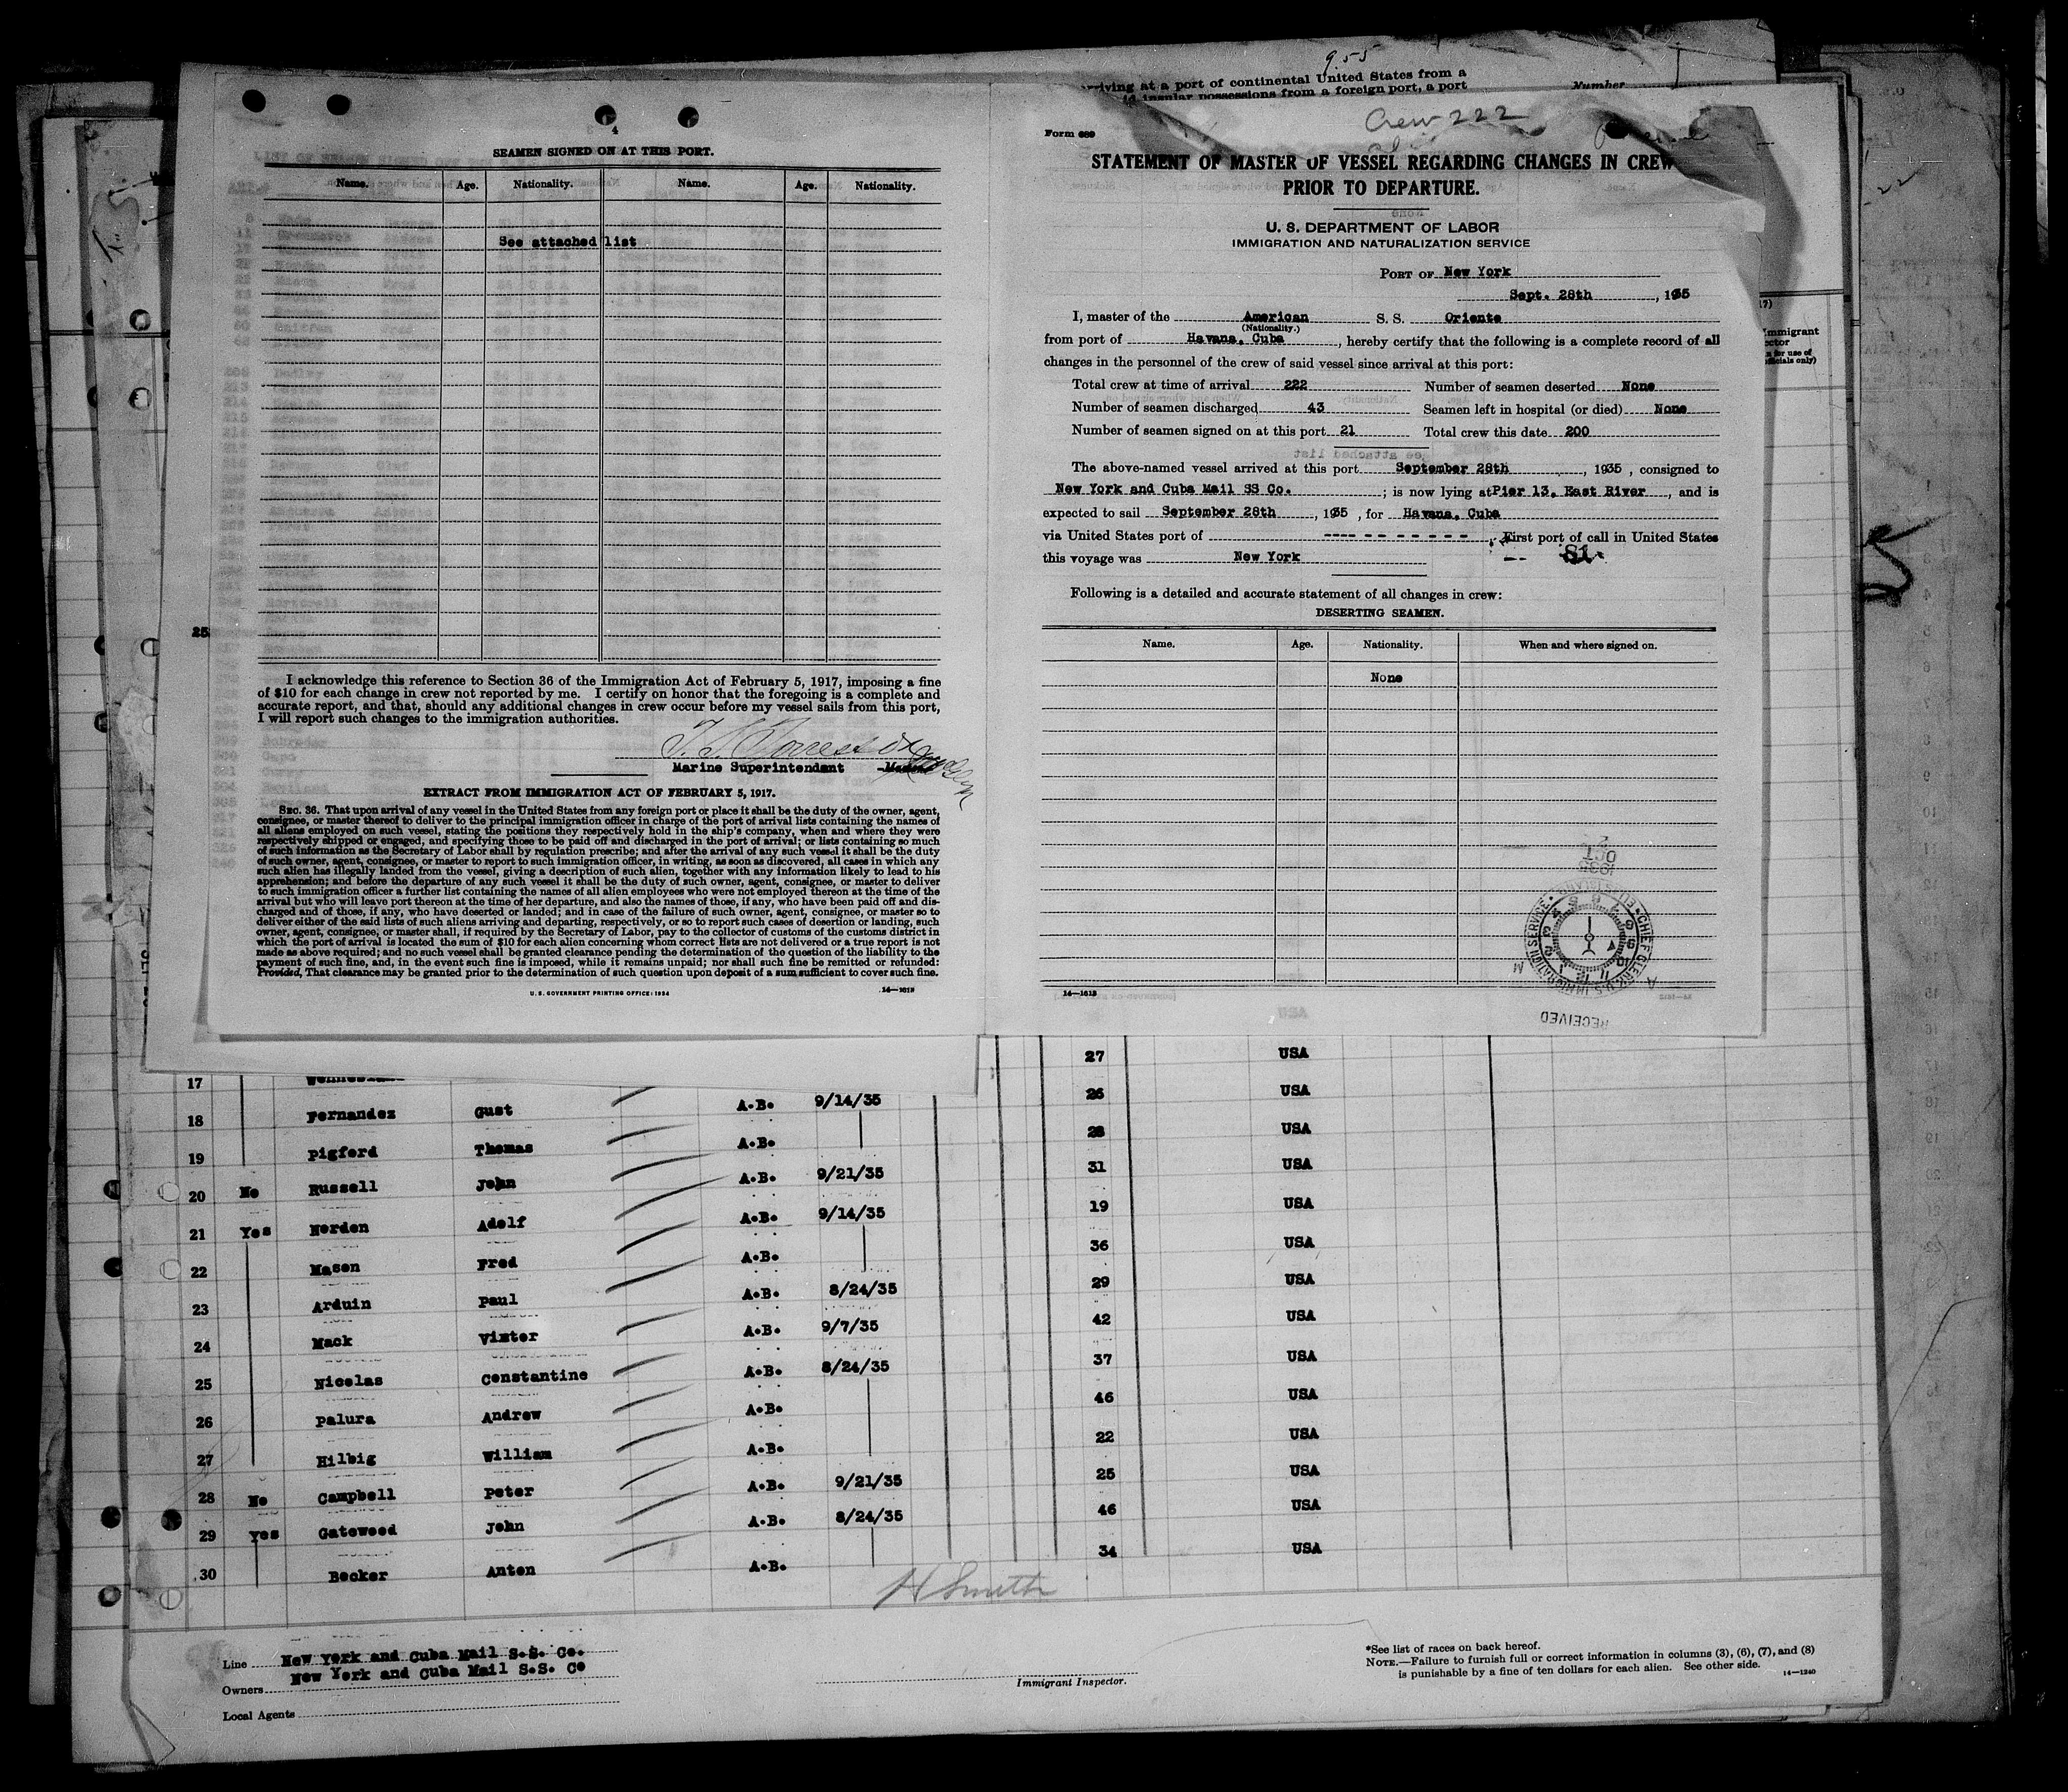 955
riving at a port of continental United States from a
insular possessions from a foreign port, a port
Number
4
SEAMEN SIGNED ON AT THIS PORT.
Name. Age. Nationality. Name. Age. Nationality.
See attached list
25
I acknowledge this reference to Section 36 of the Immigration Act of February 5, 1917, imposing a fine
of $10 for each change in crew not reported by me. I certify on honor that the foregoing is a complete and
accurate report, and that, should any additional changes in crew occur before my vessel sails from this port,
I will report such changes to the immigration authorities.
Marine Superintendant Master
EXTRACT FROM IMMIGRATION ACT OF FEBRUARY 5, 1917.
SEC. 36. That upon arrival of any vessel in the United States from any foreign port or place it shall be the duty of the owner, agent,
consignee, or master thereof to deliver to the principal immigration officer in charge of the port of arrival lists containing the names of
all aliens employed on such vessel, stating the positions they respectively hold in the ship's company, when and where they were
respectively shipped or engaged, and specifying those to be paid off and discharged in the port of arrival; or lists containing so much
of such information as the Secretary of Labor shall by regulation prescribe; and after the arrival of any such vessel it shall be the duty
of such owner, agent, consignee, or master to report to such immigration officer, in writing, as soon as discovered, all cases in which any
such alien has illegally landed from the vessel, giving a description of such alien, together with any information likely to lead to his
apprehension; and before the departure of any such vessel it shall be the duty of such owner, agent, consignee, or master to deliver
to such immigration officer a further list containing the names of all alien employees who were not employed thereon at the time of the
arrival but who will leave port thereon at the time of her departure, and also the names of those, if any, who have been paid off and dis-
charged and of those, if any, who have deserted or landed; and in case of the failure of such owner, agent, consignee, or master so to
deliver either of the said lists of such aliens arriving and departing, respectively, or so to report such cases of desertion or landing, such
owner, agent, consignee, or master shall, if required by the Secretary of Labor, pay to the collector of customs of the customs district in
which the port of arrival is located the sum of $10 for each alien concerning whom correct lists are not delivered or a true report is not
made as above required; and no such vessel shall be granted clearance pending the determination of the question of the liability to the
payment of such fine, and, in the event such fine is imposed, while it remains unpaid; nor shall such fine be remitted or refunded:
Provided, That clearance may be granted prior to the determination of such question upon deposit of a sum sufficient to cover such fine.
U. S. GOVERNMENT PRINTING OFFICE: 1934 14—1613
Crew 222
Form 689
STATEMENT OF MASTER OF VESSEL REGARDING CHANGES IN CREW
PRIOR TO DEPARTURE.
U. S. DEPARTMENT OF LABOR
IMMIGRATION AND NATURALIZATION SERVICE
PORT OF New York
Sept. 28th, 1935
I, master of the American S. S. Oriente
(Nationality.)
from port of Havana, Cuba, hereby certify that the following is a complete record of all
changes in the personnel of the crew of said vessel since arrival at this port:
Total crew at time of arrival 222 Number of seamen deserted None
Number of seamen discharged 43 Seamen left in hospital (or died) None
Number of seamen signed on at this port 21 Total crew this date 200
The above-named vessel arrived at this port September 28th, 1935, consigned to
New York and Cuba Mail SS Co.; is now lying at Pier 13, East River, and is
expected to sail September 28th, 1935, for Havana, Cuba
via United States port of ---- -- - - - - - -. First port of call in United States
this voyage was New York
81
Following is a detailed and accurate statement of all changes in crew:
DESERTING SEAMEN.
Name. Age. Nationality. When and where signed on.
None
OCT
1935
CHIEF CLERK U.S. IMMIGRATION SERVICE
RECEIVED
14—1613
17
27 USA
18 Fernandez Gust A.B. 9/14/35 26 USA
19 Pigford Thomas A.B. 28 USA
20 No Russell John A.B. 9/21/35 31 USA
21 Yes Norden Adolf A.B. 9/14/35 19 USA
22 Mason Fred A.B. 36 USA
23 Arduin Paul A.B. 8/24/35 29 USA
24 Mack Vinter A.B. 9/7/35 42 USA
25 Nicolas Constantine A.B. 8/24/35 37 USA
26 Palura Andrew A.B. 46 USA
27 Hilbig William A.B. 22 USA
28 No Campbell Peter A.B. 9/21/35 25 USA
29 Yes Gatewood John A.B. 8/24/35 46 USA
30 Becker Anton A.B. 34 USA
H Smith
Line New York and Cuba Mail S.S. Co.
Owners New York and Cuba Mail S.S. Co
Local Agents
Immigrant Inspector.
*See list of races on back hereof.
NOTE.—Failure to furnish full or correct information in columns (3), (6), (7), and (8)
is punishable by a fine of ten dollars for each alien. See other side. 14—1240